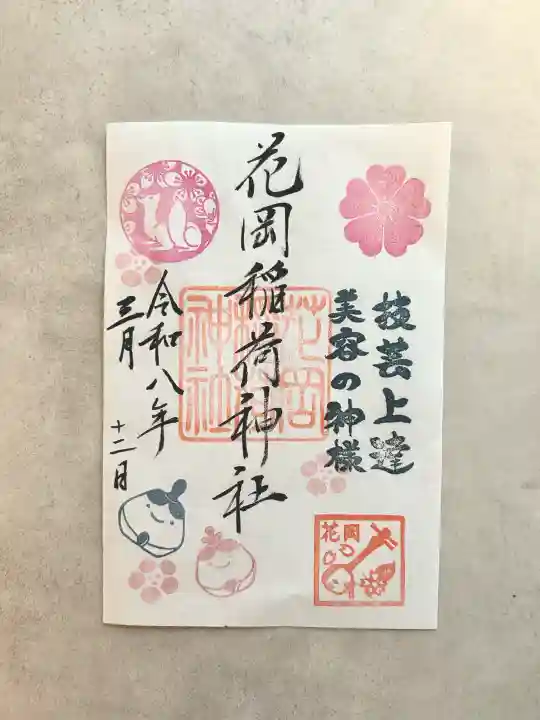 技芸上達
美容の神様
花岡稲荷神社
花岡稲荷神社
令和八年
三月
十二日
花岡